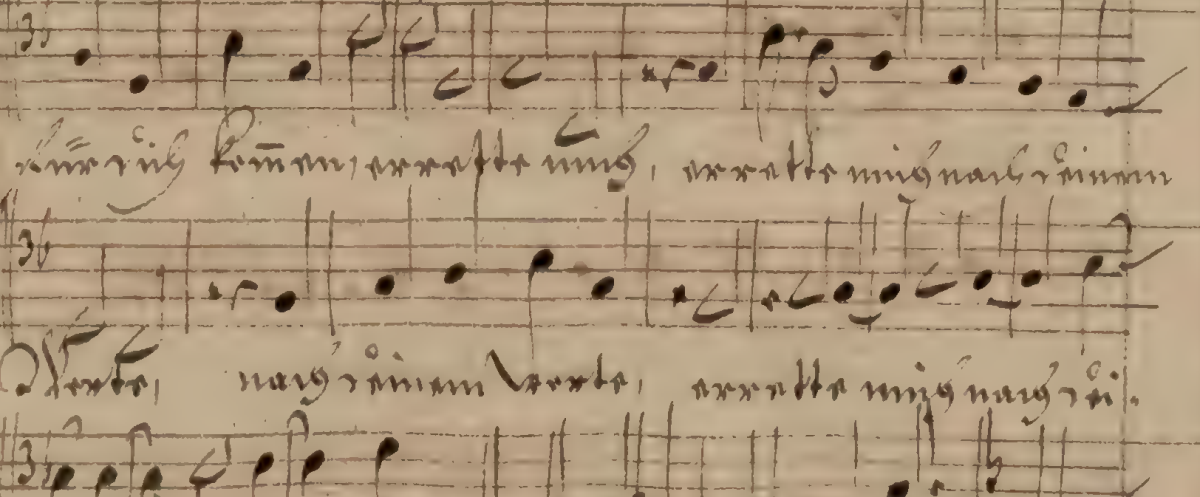 für dich kom̄en, errette mich, errette mich nach deinem
Worte, nach deinem Worte, errette mich nach dei-